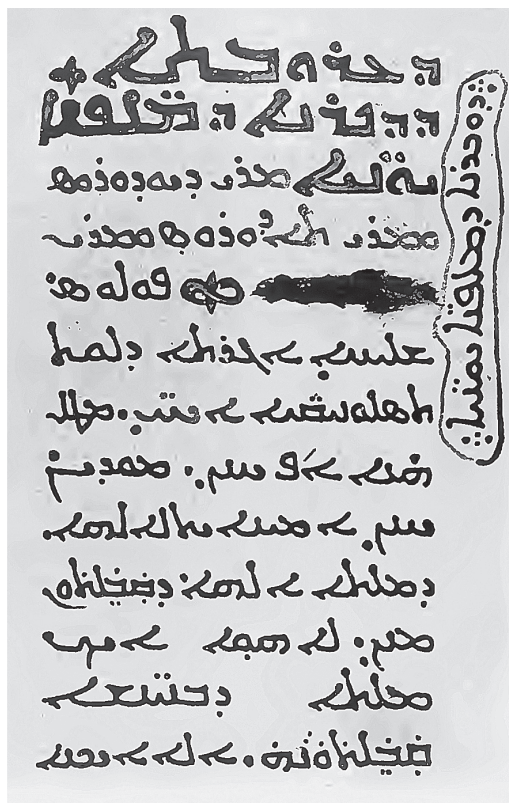 ܕܥܪܘܒܬܐ
ܕܕܘܟܪܢܐ ܕܡܠܦ̈ܢܐ
ܝܘܢ̈ܝܐ ܡܪܝ ܕܝܘܕܘܪܘܣ
ܘܡܪܝ ܬܐܘܕܘܪܘܣ ܘܡܪܝ
ܦܘܠܘܣ
ܫܠܝܚܐ ܐܓܪܬܐ ܕܠܘܬ
ܬܣܠܘܢܝܩ̈ܝܐ ܐܚ̈ܝ. ܡܛܠ
ܗܢܐ ܐܦ ܚܢܢ. ܡܘܕܝܢ
ܚܢܢ ܐܡܝܢܐܝܬ ܠܐܠܗܐ.
ܕܡܠܬܐ ܕܐܠܗܐ ܕܩܒܠܬܘܢ
ܡܢܢ. ܠܐ ܗܘܐ ܐܝܟ
ܡܠܬܐ ܕܒܢܝ̈ܢܫܐ
ܩܒܠܬܘܢܗ. ܐܠܐ ܐܝܟܢܐ
ܕܘܟܪܢܐ ܕܡܠܦܢ̈ܐ ܝܘܢ̈ܝܐ